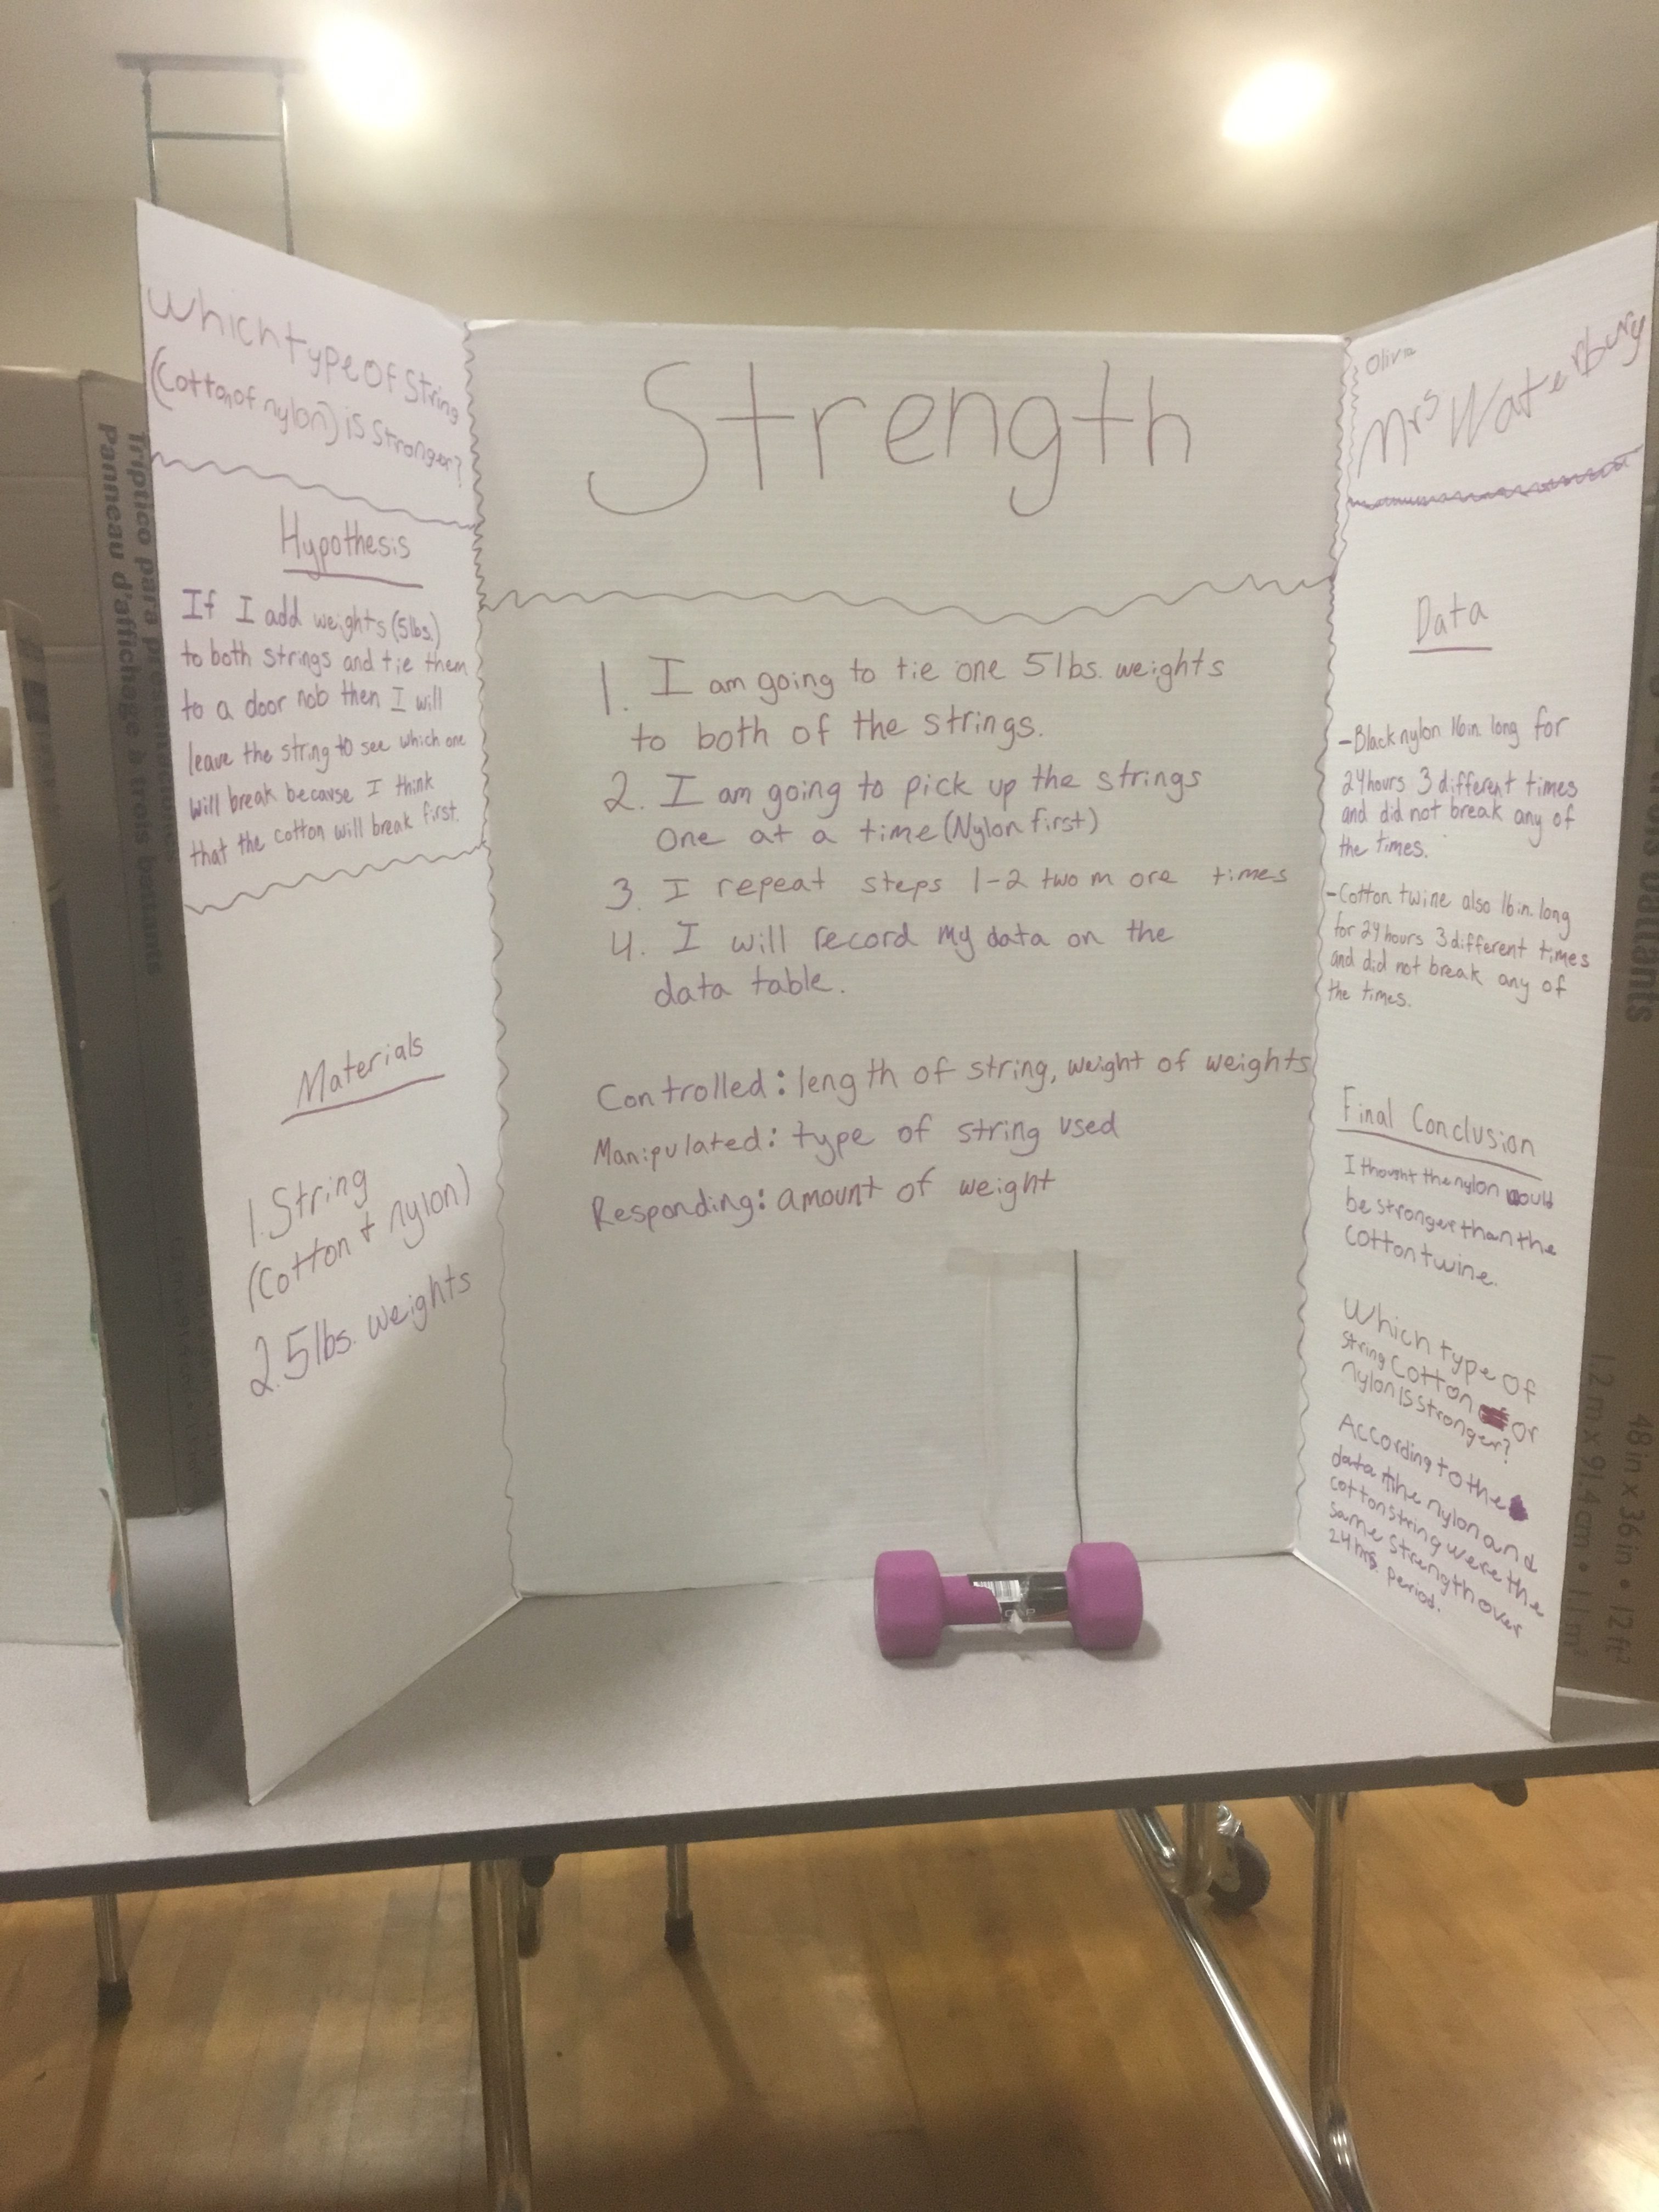 Which type of String
(Cotton of nylon) is Stronger?
Hypothesis
If I add weights (5lbs.)
to both strings and tie them
to a door nob then I will
leave the string to see which one
will break because I think
that the cotton will break first.
Materials
1. String
(Cotton + nylon)
2. 5lbs. weights
Strength
1. I am going to tie one 5lbs. weights
to both of the strings.
2. I am going to pick up the strings
One at a time (Nylon first)
3. I repeat steps 1-2 two more times
4. I will record my data on the
data table.
Controlled: length of string, weight of weights
Manipulated: type of string used
Responding: amount of weight
Olivia
Mrs Waterbury
Data
-Black nylon 16in. long for
24hours 3 different times
and did not break any of
the times.
-Cotton twine also 16in. long
for 24 hours 3 different times
and did not break any of
the times.
Final Conclusion
I thought the nylon would
be stronger than the
cotton twine.
Which type of
string cotton or
nylon is stronger?
According to the
data the nylon and
cotton string were the
same strength over
24hrs. period.
Triptico para presentaciones
Panneau d'affichage à trois battants
48in x 36in • 12ft²
1.2 m x 91.4 cm • 1.1 m²